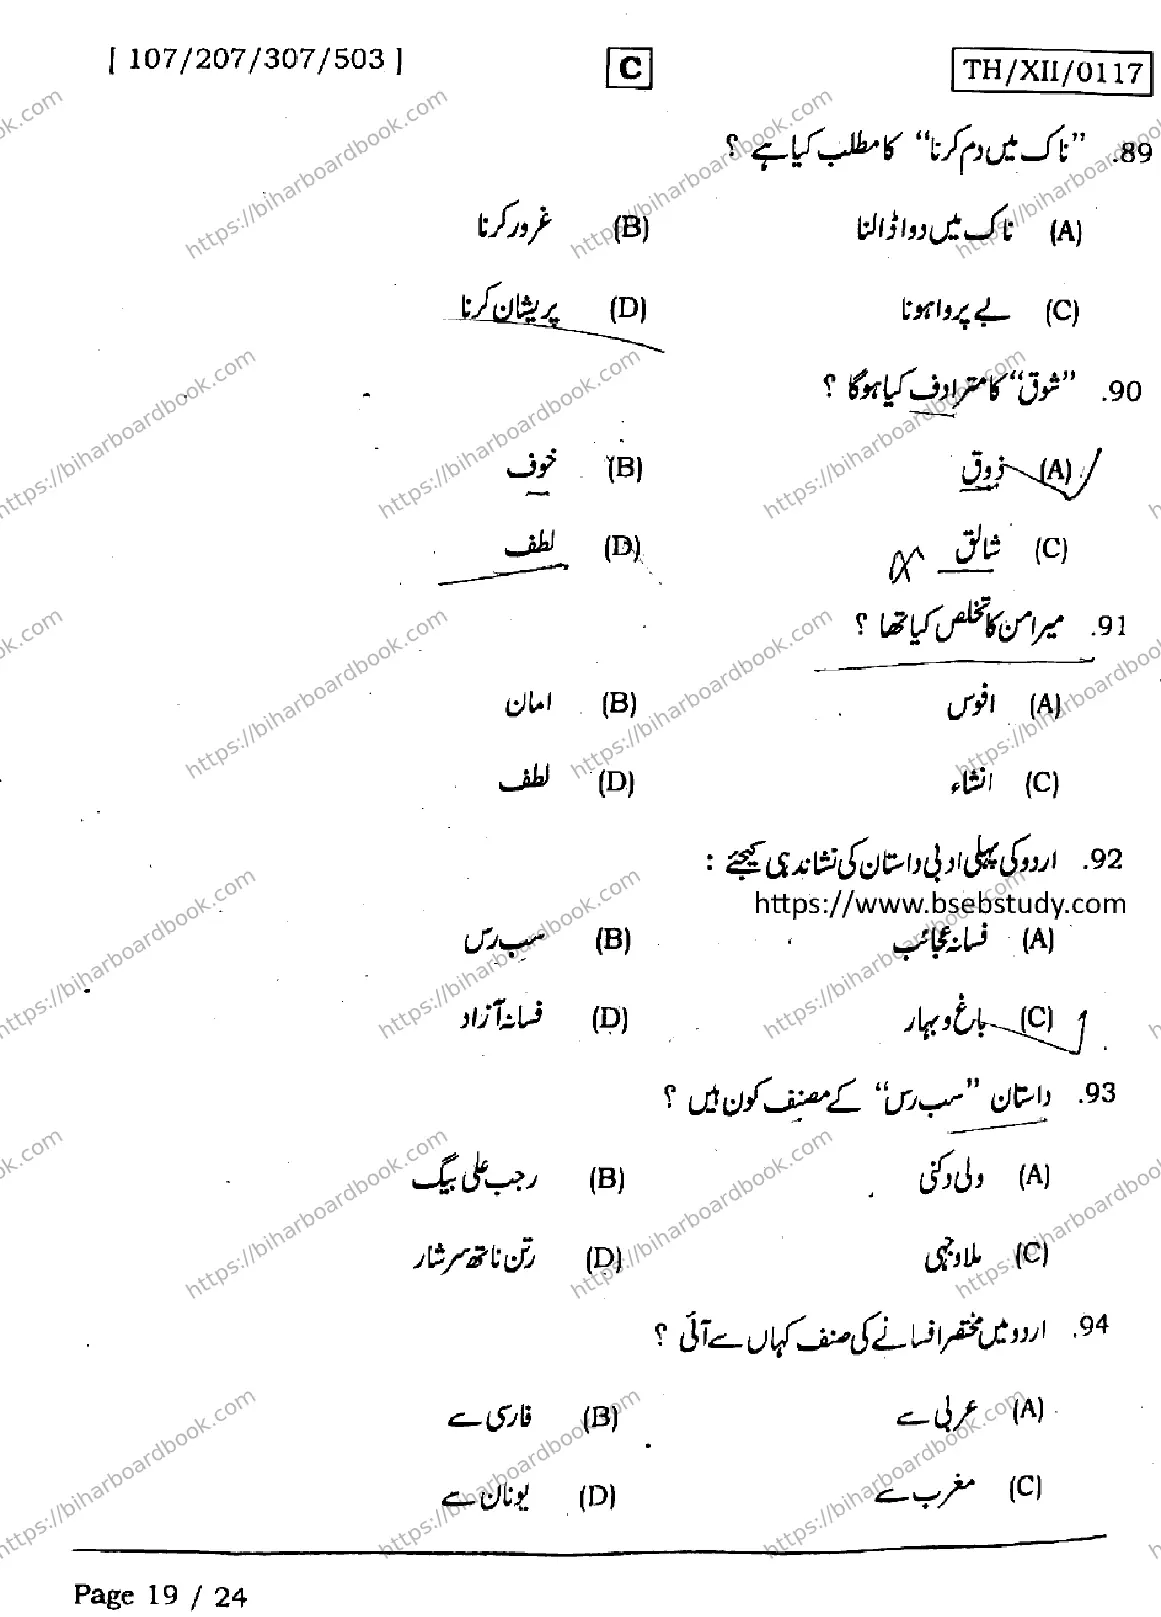 [ 107/207/307/503 ] C TH/XII/0117
89. ”ناک میں دم کرنا“ کا مطلب کیا ہے ؟
(A) ناک میں دوا ڈالنا (B) غرور کرنا
(C) بے پروا ہونا (D) پریشان کرنا
90. ”شوق“ کا مترادف کیا ہوگا ؟
(A) ذوق (B) خوف
(C) شائق (D) لطف
91. میر امن کا تخلص کیا تھا ؟
(A) افوس (B) امان
(C) انشاء (D) لطف
92. اردو کی پہلی ادبی داستان کی نشاندہی کیجئے :
https://www.bsebstudy.com
(A) فسانہ عجائب (B) سب رس
(C) باغ و بہار (D) فسانہ آزاد
93. داستان ”سب رس“ کے مصنف کون ہیں ؟
(A) ولی دکنی (B) رجب علی بیگ
(C) ملا وجہی (D) رتن ناتھ سرشار
94. اردو میں مختصر افسانے کی صنف کہاں سے آئی ؟
(A) عربی سے (B) فارسی سے
(C) مغرب سے (D) یونان سے
Page 19 / 24
https://biharboardbook.com